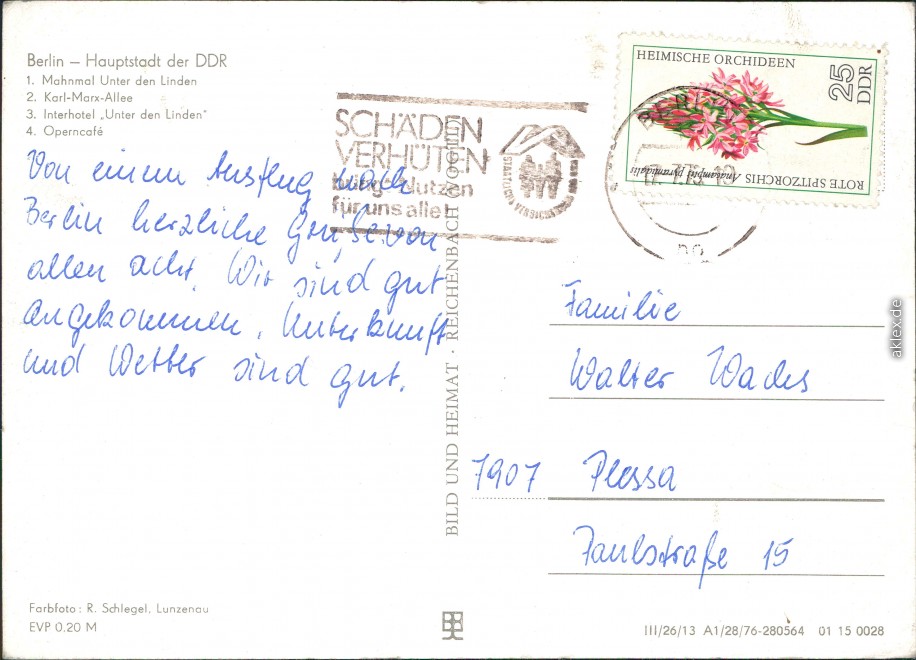 Berlin — Hauptstadt der DDR
1. Mahnmal Unter den Linden
2. Karl-Marx-Allee
3. Interhotel „Unter den Linden"
4. Operncafé
Von einem Ausflug nach
Berlin herzliche Grüße von
allen acht. Wir sind gut
angekommen. Unterkunft
und Wetter sind gut.
Farbfoto: R. Schlegel, Lunzenau
EVP 0.20 M
SCHÄDEN
VERHÜTEN
bringt Nutzen
für uns alle!
STAATLICHE VERSICHERUNG DER DDR
BILD UND HEIMAT · REICHENBACH (VOGTL)
HEIMISCHE ORCHIDEEN
25
DDR
ROTE SPITZORCHIS Anacamptis pyramidalis
BERLIN
Familie
Walter
7907 Plessa
Paulstraße 15
III/26/13 A1/28/76-280564 01 15 0028
aklex.de